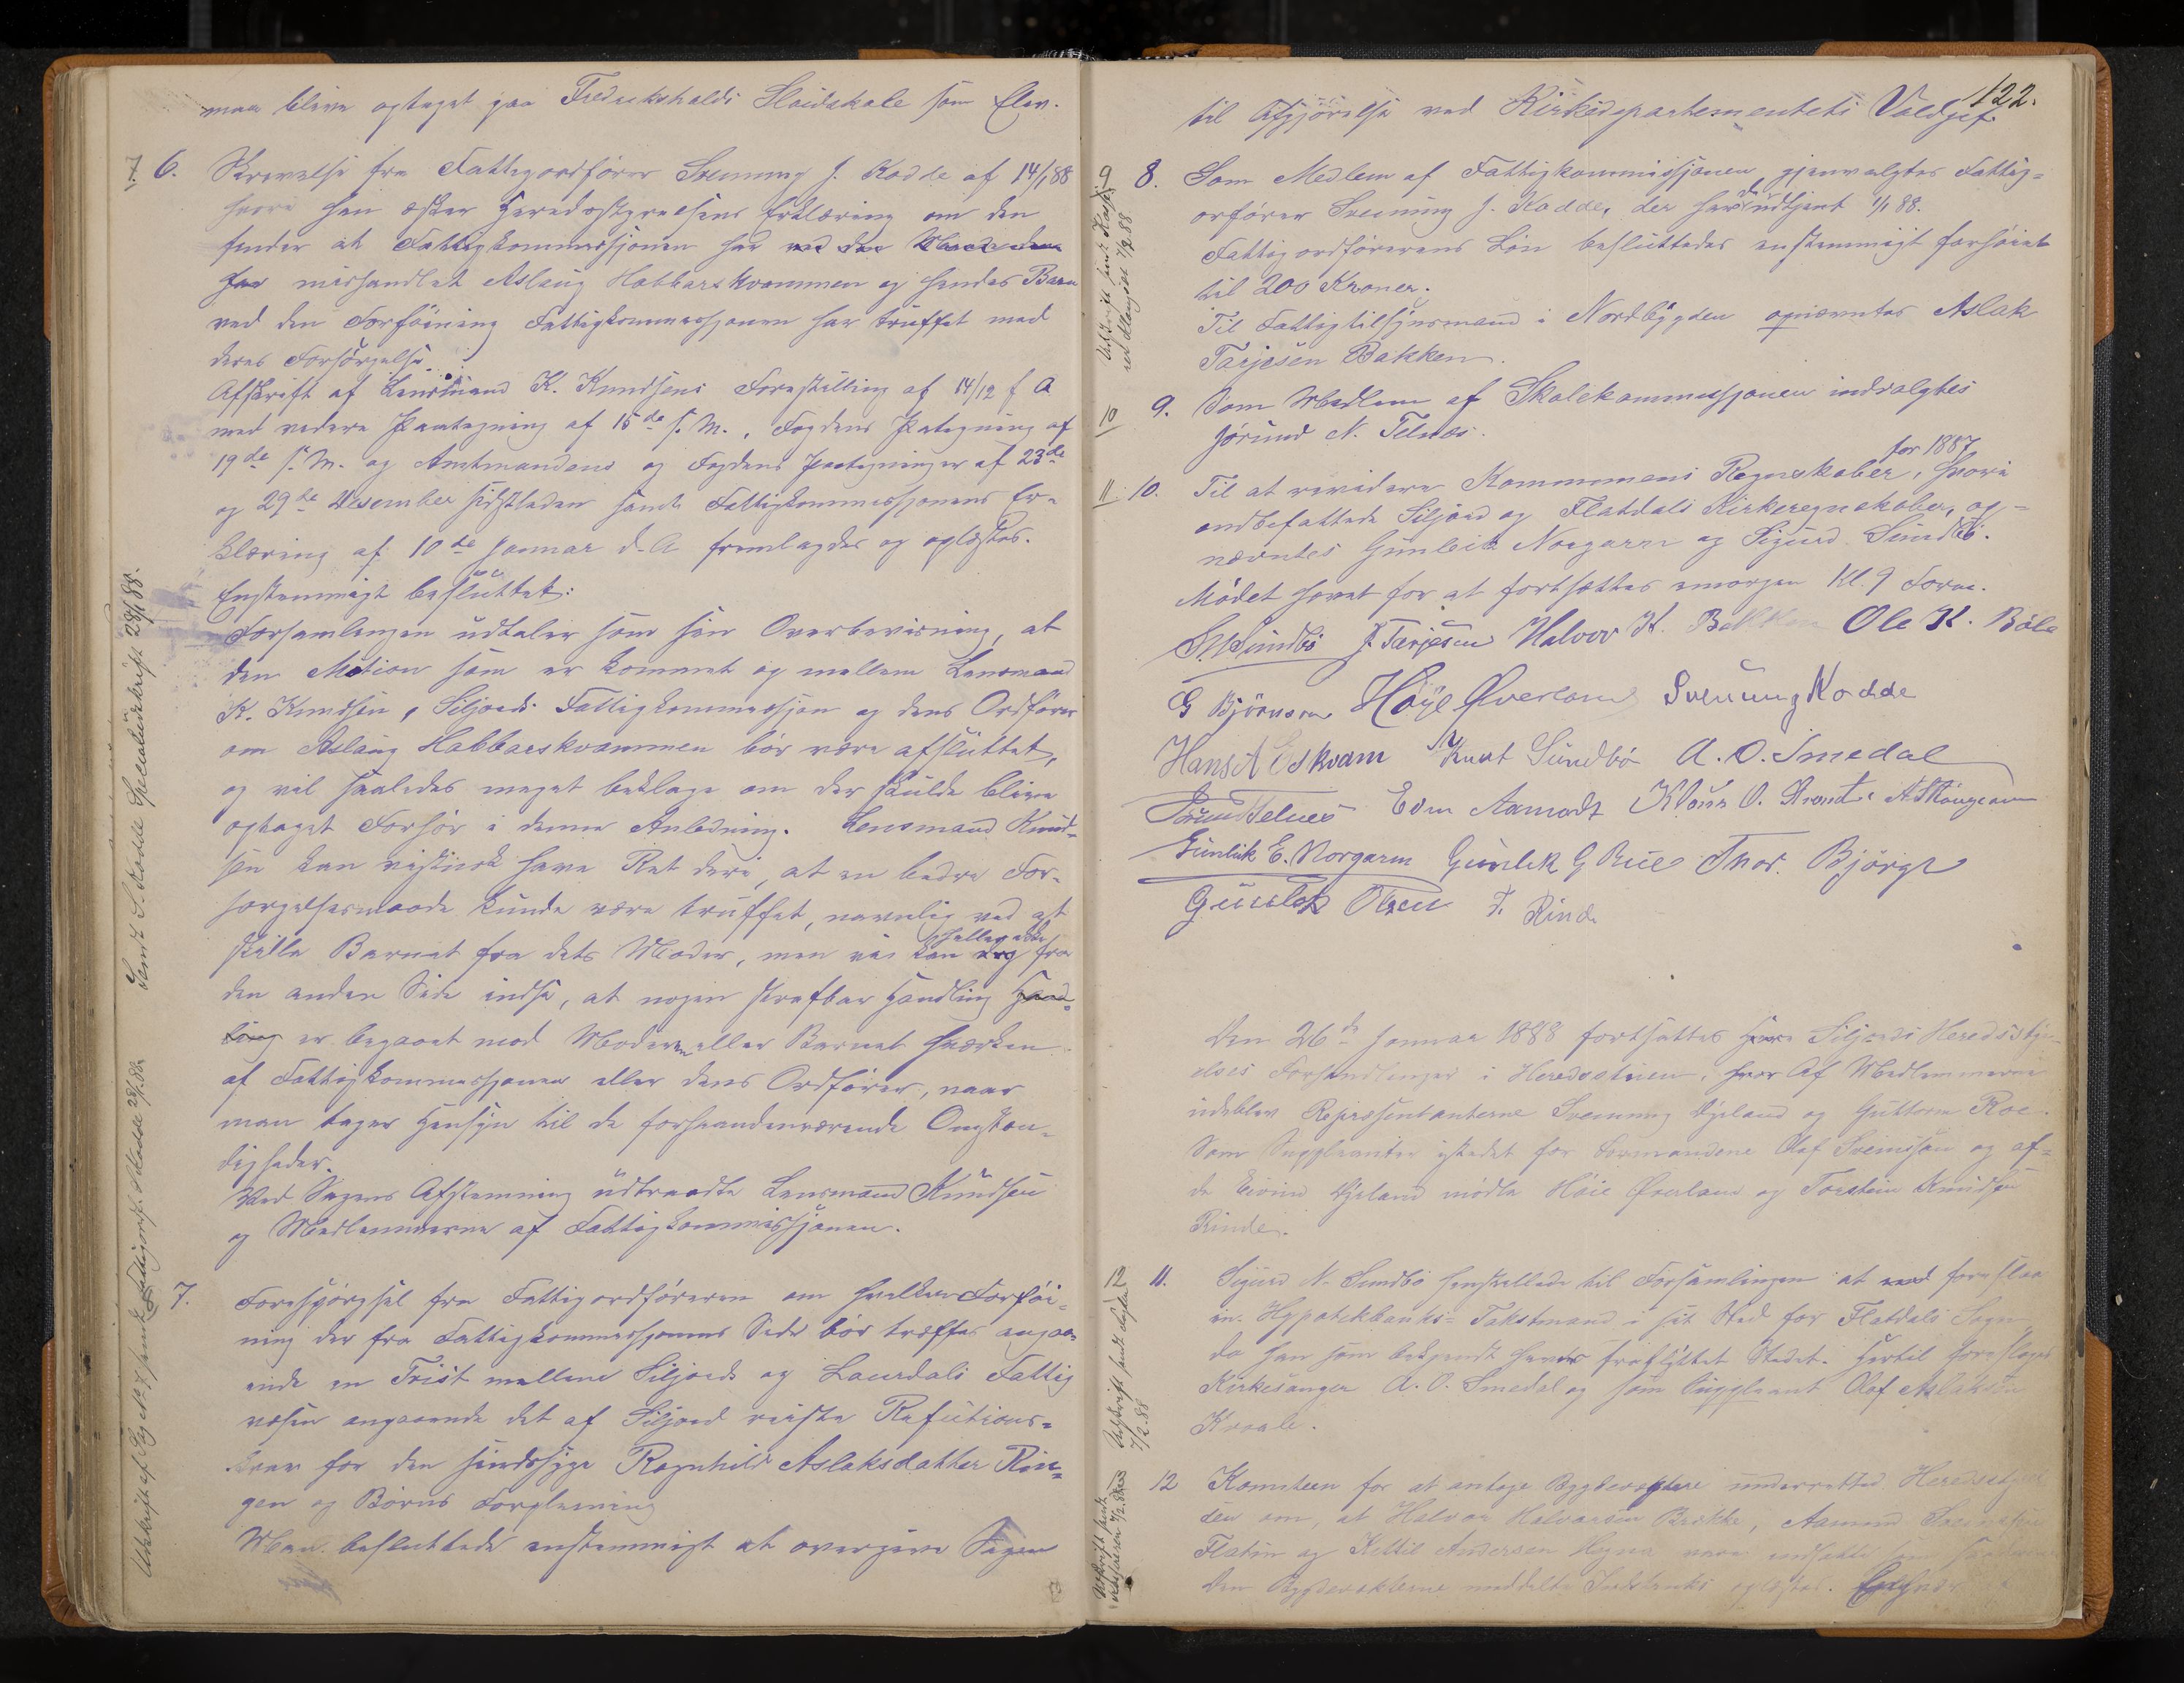 maa blive optaget paa Fredrikshalds Sløidskole som Elev.
7. 6. Skrivelse fra Fattigordfører Svenung J. Kodde af 14/1 88
hvori han æsker Heredsstyrelsens Erklæring om den
finder at Fattigkommissjonen har ved den Maade den
har mishandlet Aslaug Habbarskvammen og hendes Barn
ved den Forføining Fattigkommissjonen har truffet med
deres Forsørgelse.
Afskrift af Lensmand K. Knudsens Forestilling af 14/12 f A
med videre Paategning af 15de s. M., Fogdens Paategning af
19de s. M. og Amtmandens og Fogdens Paategninger af 23de
og 29de Desember sidstleden samt Fattigkommissjonens Er-
klæring af 10de Januar d. A fremlagdes og oplæstes.
Enstemmigt besluttet:
Forsamlingen udtaler som sin Overbevisning, at
den Motion som er kommet op mellem Lensmand
K. Knudsen, Siljords Fattigkommissjon og dens Ordfører
om Aslaug Habbarskvammen bør være afsluttet,
og vil saaledes meget beklage om der skulde blive
optaget Forhør i denne Anledning. Lensmand Knud-
sen kan vistnok have Ret deri, at en bedre For-
sørgelsesmaade kunde være truffet, navnlig ved at
skille Barnet fra dets Moder, men vi kan heller ikke fra
den anden Side indse, at nogen strafbar Handling Hand-
ling er begaaet mod Moderen eller Barnet hverken
af Fattigkommissjonen eller dens Ordfører, naar
man tager Hensyn til de forhaandenværende Omstæn-
digheder.
Ved Sagens Afstemning udtraadte Lensmand Knudsen
og Medlemmerne af Fattigkommissjonen.
7. Forespørgsel fra Fattigordføreren om hvilken Forføi-
ning der fra Fattigkommissjonens Side bør træffes angaa-
ende en Trist mellem Siljords og Laurdals Fattig
væsen angaaende det af Siljord reiste Refusions-
krav for den sindssyge Ragnhild Aslaksdatter Rin-
gen og Børns Forpleining
Man besluttede enstemmigt at overgive Sagen
Sendt S. Kodde Specialudskrift 28/1 88.
Udskrift af Sag No 7 sendt Fattigordf. Kodde 28/1 88
122.
til Afgjørelse ved Kirkedepartementets Voldgift.
9 8. Som Medlem af Fattigkommissjonen gjenvalgtes Fattig-
orfører Svenung J. Kodde, der havde udtjent 1/1 88.
Fattigordførerens Løn besluttedes enstemmigt forhøiet
til 200 Kroner.
Til Fattigtilsynsmand i Nordbygden opnævntes Aslak
Tarjesen Bakken.
10 9. Som Medlem af Skolekommissjonen indvalgtes
Jørund N. Telnes.
for 1887
11 10. Til at revidere Kommunens Regnskaber, hvori
indbefattede Siljord og Flatdals Kirkeregnskaber, op-
nævntes Gunleik Norgarn og Sigurd Sundbø.
Mødet hævet for at fortsættes imorgen Kl. 9 Form.
S. N. Sundbø J. Tarjesen Halvor H. Bakken Ole K. Bøle
G Bjørnson Høye Øverland Svenung Kodde
Hans A Eskvam Knut Sundbø A. O. Smedal
Jørund Telnes Even Aamodt Klaus O. Strand
Gunleik E. Norgarn Gunlek G Rue Thor. Bjørge
Gunlek Olsen T. Rinde
Den 26de Januar 1888 fortsattes Siljords Heredssty-
relses Forhandlinger i Heredsstuen, hvor Af Medlemmerne
udeblev Repræsentanterne Svenung Øverland og Guttorm Roe.
Som Suppleanter istedet for Formændene Olaf Sveinson og af-
de Eivind mødte Høie Øverland og Torstein Knudsen
Rinde.
12 11. Sigurd N. Sundbø henstillede til Forsamlingen at foreslaa
en Hypotekbanks-Takstmand i sit Sted for Flatdals Sogn
da han som bekjendt havde fraflyttet Stedet. Hertil foresloges
Kirkesanger A. O. Smedal og som Suppleant Olaf Aslaksen
Kroale.
12 Komiteen for at antage Bygdevægtere underrettede Heredsstyrel-
sen om, at Halvor Halvorsen Brække, Aamund
Flatin og Kittil Andersen Hegna var indsatte